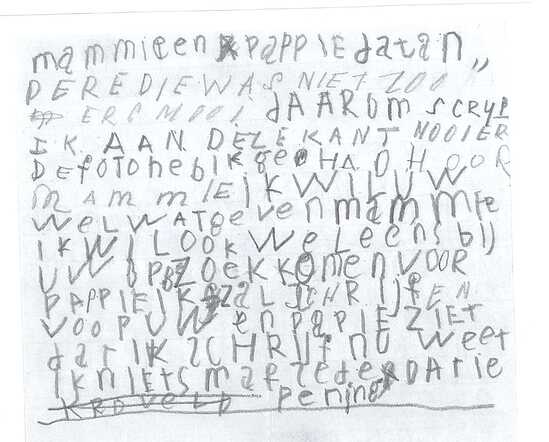 mammieen pappie datan,,
DERE DIE WAS NIET ZOO
ERG MOOI dAAROM SCRYF
IK AAN DEZE KANT MOOIER
DefOTOhebIK geHAD HOOR
MAMMIE IK WIL UW
WeL WATgevenmammie
IK WIL OOK WeLeens bIJ
UW OPBZOEKKOmenVOOR
pAPPIE IK ZAL SCHRIJfEN
VOOPUW enpapIE ZIET
datIK SCHRIJf NU weet
IKnIETS mAf
pening